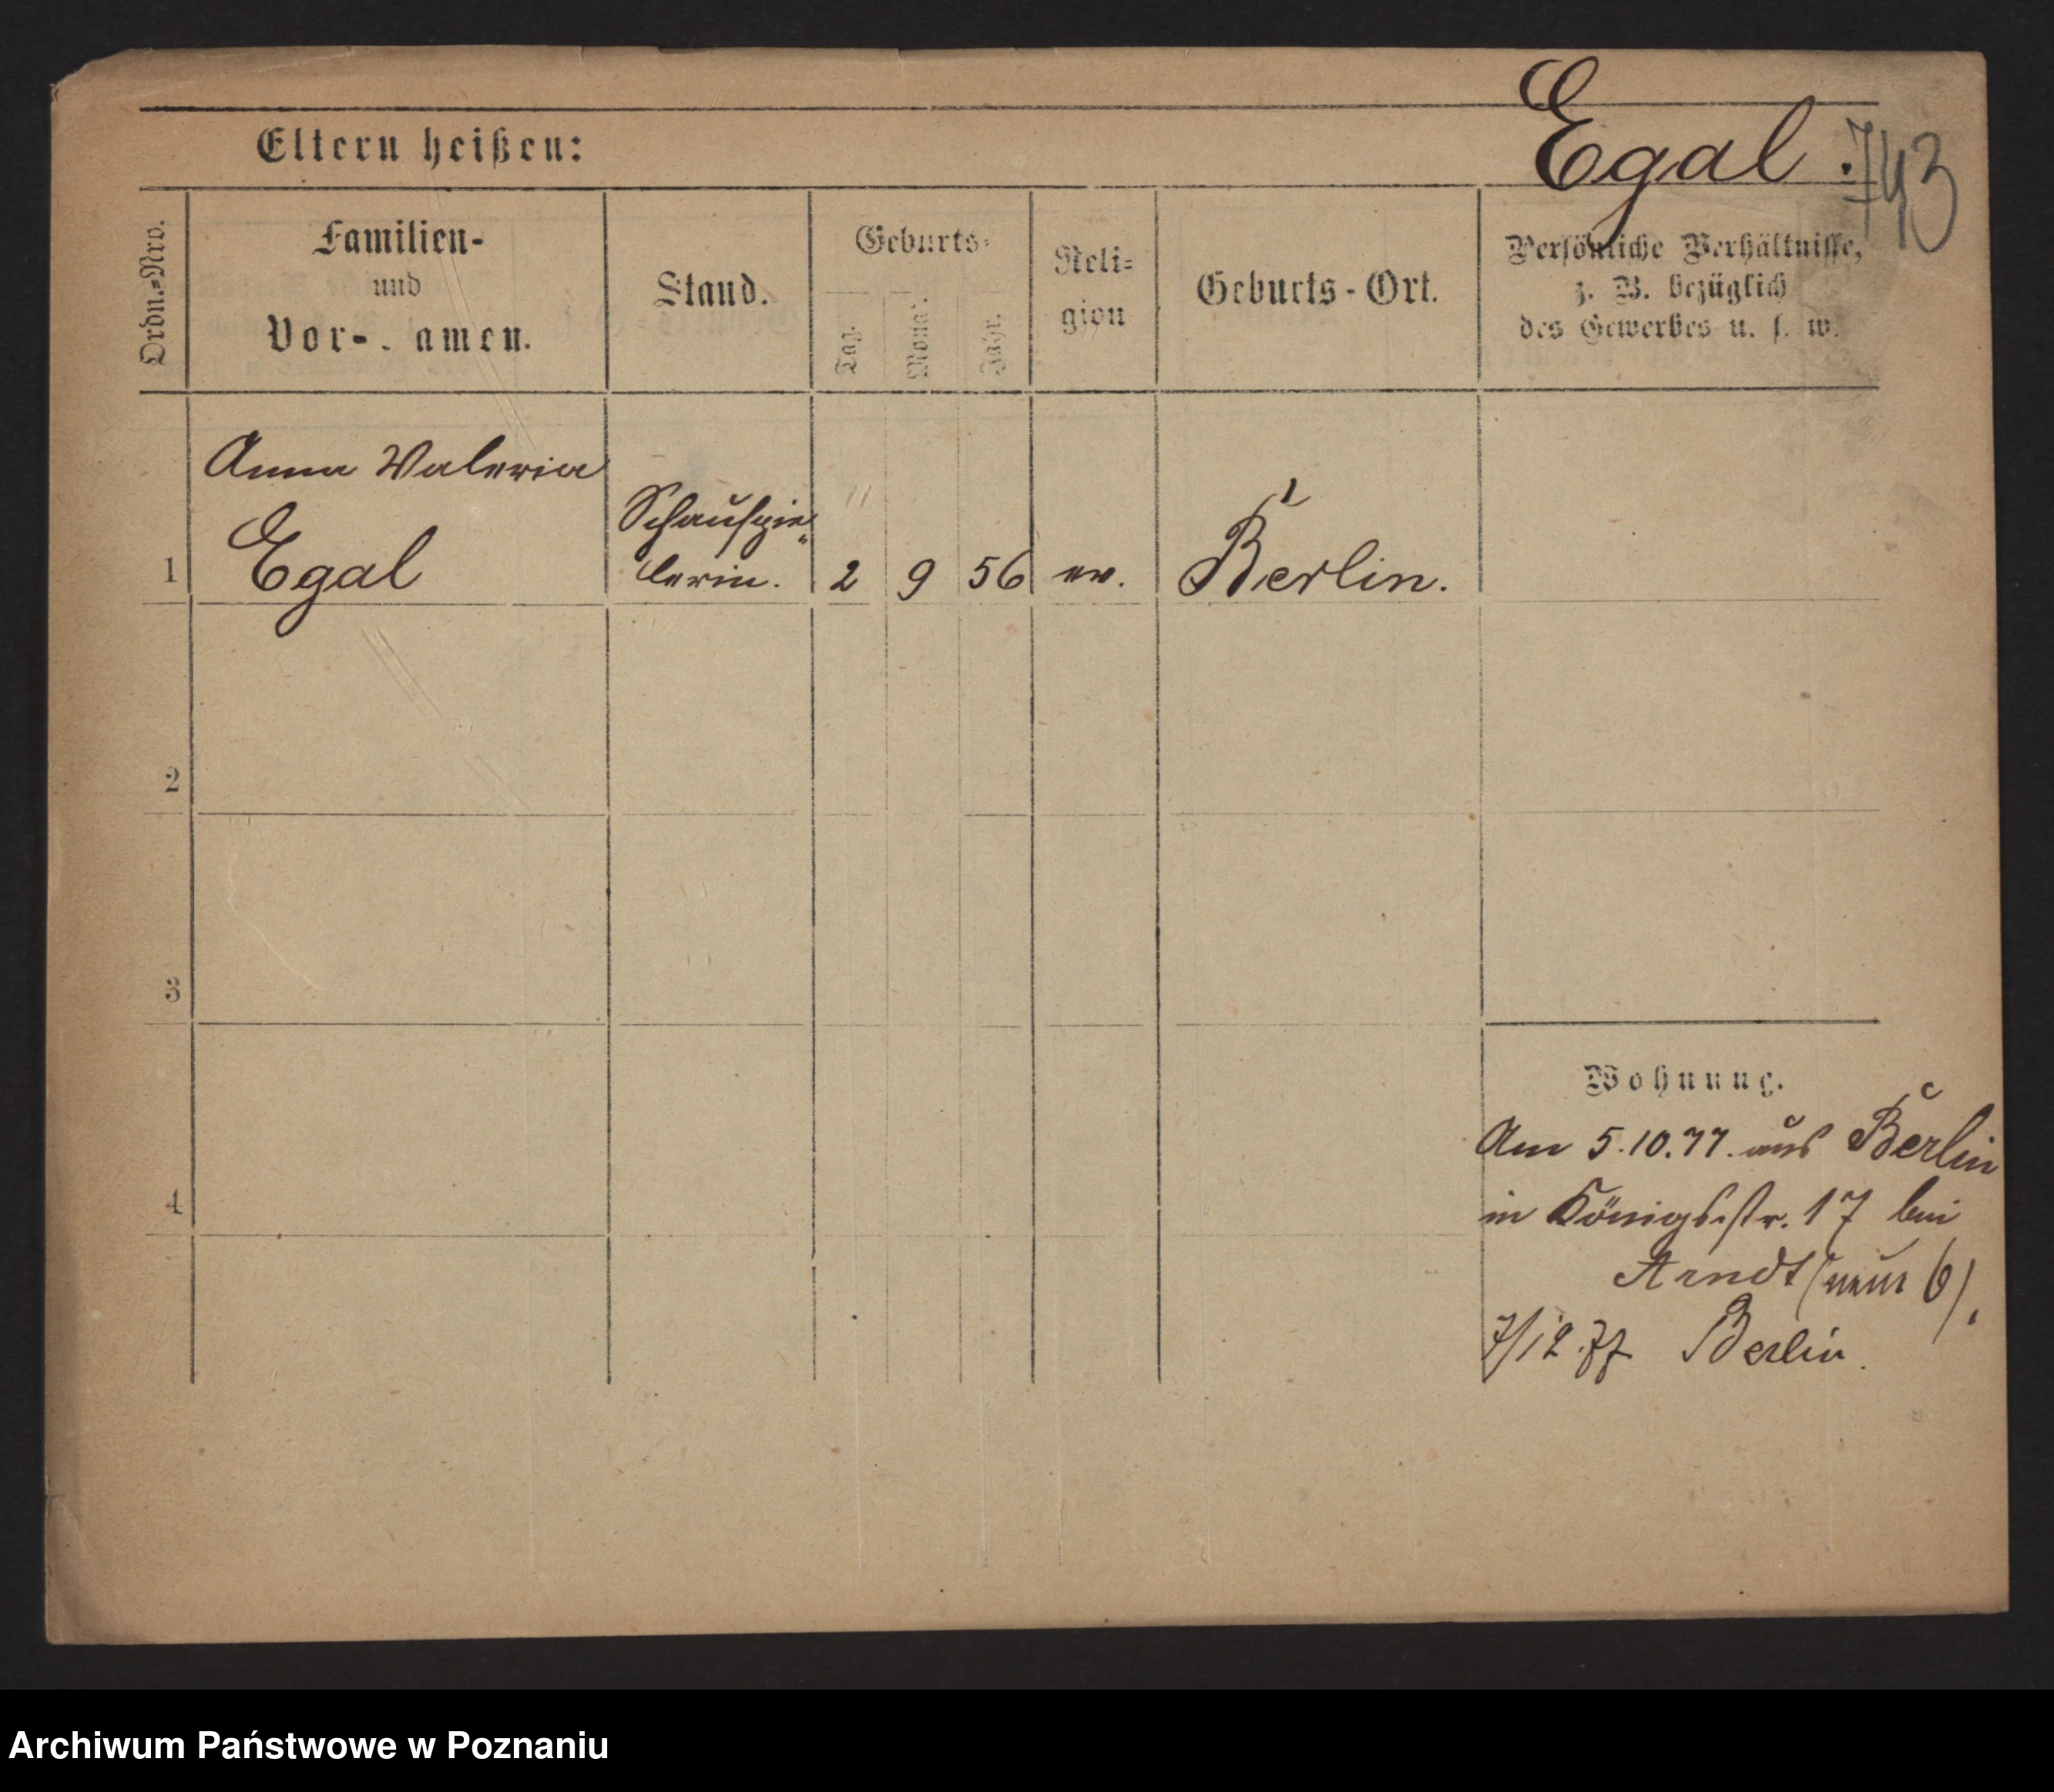 Egal.
743
Eltern heißen:
Ordn.-Nro.
Familien-
und
Vor- amen.
Stand.
Geburts-
Tag.
Monat.
Jahr.
Reli-
gion
Geburts-Ort.
Persönliche Verhältnisse,
z. B. bezüglich
des Gewerbes u. s. w.
1
Anna Valeria
Egal
Schauspie-
lerin.
2
9
56
ev.
Berlin.
2
3
4
Wohnung.
Am 5.10.77. aus Berlin
in Königsstr. 17 bei
Arndt (neue 6).
7/12.77 Berlin.
Archiwum Państwowe w Poznaniu